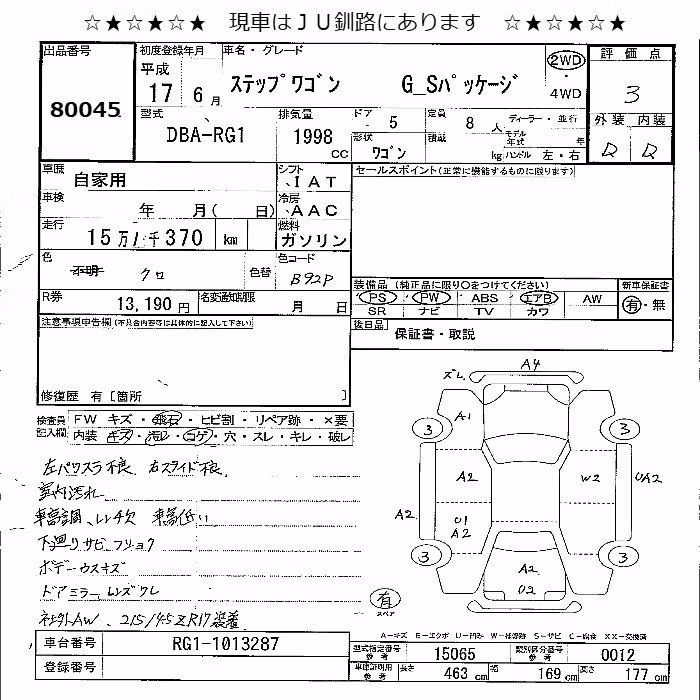 ☆★☆★☆★ 現車はＪＵ釧路にあります ☆★☆★☆★
出品番号
80045
初度登録年月
平成
17 6 月
車名・グレード
ステップワゴン G_Sパッケージ
2WD
・
4WD
評価点
3
外装 内装
D D
型式
DBA-RG1
排気量
1998 CC
ドア
5
形状
ワゴン
定員
8 人
積載
kg
ディーラー・並行
モデル年式 年
ハンドル 左・右
車歴
自家用
シフト
IAT
車検
年 月( 日)
冷房
AAC
走行
15万 千370 km
燃料
ガソリン
色
不明 クロ
色替
色コード
B92P
R券
13,190 円
名変通知期限
月 日
セールスポイント(正常に機能するものに限ります)
装備品 (純正品に限り○をつけてください)
PS PW ABS エアB AW
SR ナビ TV カワ
新車保証書
有・無
後日品
保証書・取説
注意事項申告欄(不具合内容等は具体的に記入して下さい)
修復歴 有[箇所 ]
検査員記入欄
FW キズ・飛石・ヒビ割・リペア跡・×要
内装 キズ・汚レ・コゲ・穴・スレ・キレ・破レ
左パワスラ不良、右スライド不良
室内汚れ
車高調、レンチ欠 車高低い
下廻りサビ
ボデーウスキズ
ドアミラーレンズワレ
社外AW、215/45ZR17装着
ズレ A4
A1
3 3
A2 W2 UA2
A2 U1
A2
3 3
A2
U2
有
スペア
A-キズ E-エクボ U-凹み W-補修跡 S-サビ C-腐食 XX-交換済
車台番号
RG1-1013287
登録番号
型式指定番号
参考
15065
類別区分番号
参考
0012
車庫証明用
参考
長さ 463 cm 幅 169 cm 高さ 177 cm